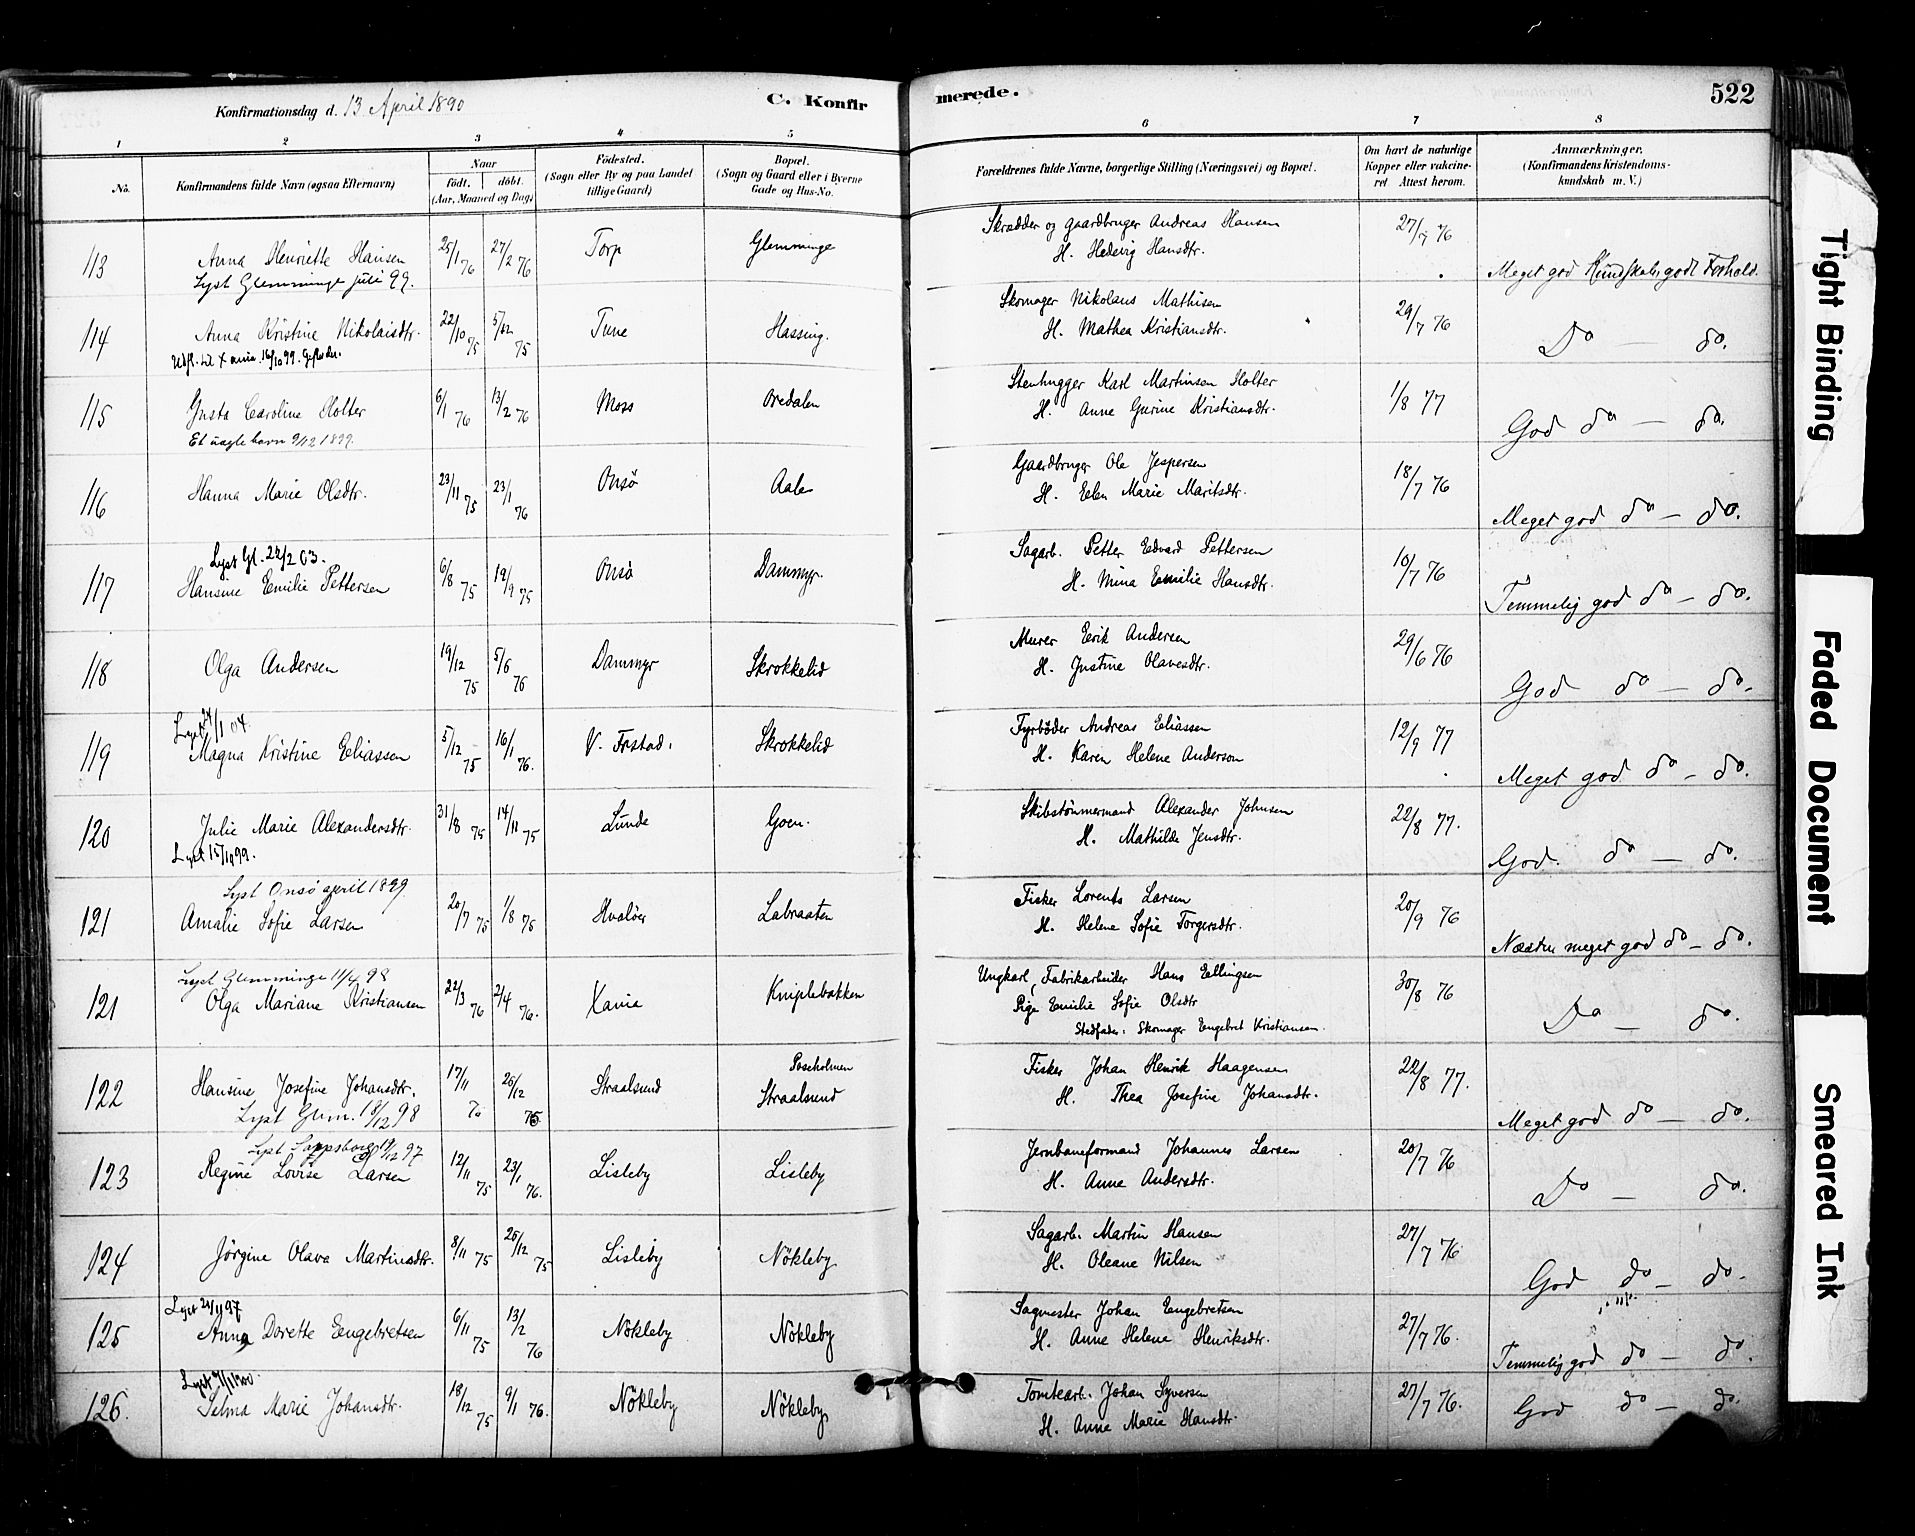 Konfirmationsdag d. 13 April 1890
C. Konfir
merede.
522
1 2 3 4 5 6 7 8
No.
Konfirmandens fulde Navn (ogsaa Efternavn)
Naar
født. døbt.
(Aar, Maaned og Dag)
Fødested.
(Sogn eller By og paa Landet
tillige Gaard)
Bopæl.
(Sogn og Gaard eller i Byerne
Gade og Hus-No.
Forældrenes fulde Navne, borgerlige Stilling (Næringsvei) og Bopæl.
Om havt de naturlige
Kopper eller vakcine-
ret Attest herom.
Anmærkninger.
(Konfirmandens Kristendoms-
kundskab m. V.)
113 Anna Henriette Hansen 25/1 76 27/2 76 Torp Glemminge Skrædder og gaardbruger Andreas Hansen 27/7 76
Lyst Glemminge juli 99. H. Hedevig Hansdtr. Meget god Kundskab, godt Forhold.
114 Anna Kristine Nikolaisdtr. 22/10 75 5/12 75 Tune Hassing. Skomager Nikolaus Mathisen 29/7 76
Udfl. til Xania 16/10 99. H. Mathea Kristiansdtr. Do — do.
115 Gusta Caroline Holter 6/1 76 13/2 76 Moss Oredalen Stenhugger Karl Martinsen Holter 1/8 77
Et uægte barn 9/12 1899. H. Anne Gurine Kristiansdtr. God do — do.
116 Hanna Marie Olsdtr. 23/11 75 23/1 76 Onsö Aale Gaardbruger Ole Jespersen 18/7 76
H. Elen Marie Maritsdtr. Meget god do — do.
Lyst Gl. 22/2 03.
117 Hansine Emilie Pettersen 6/8 75 19/9 75 Onsö Dammyr. Sagarb. Petter Edvard Pettersen 10/7 76
H. Mina Emilie Hansdtr. Temmelig god do — do.
118 Olga Andersen 19/12 75 5/6 76 Dammyr Skrokkelid Murer Erik Andersen 29/6 76
H. Justine Olavesdtr. God do — do.
Lyst 24/1 04.
119 Magna Kristine Eliassen 5/12 75 16/1 76. V. Frstad. Skrokkelid Fyrbøder Andreas Eliassen 12/9 77
H. Karen Helene Anderson Meget god do — do.
120 Julie Marie Alexandersdtr. 31/8 75 14/11 75 Lunde Goen. Skibstömmermand Alexander Johnsen 22/8 77.
Lyst 15/1 99. H. Mathilde Jensdtr. God. do — do.
Lyst Onsö april 1899.
121 Amalie Sofie Larsen 20/7 75 1/8 75 Hvaløer Labraaten Fisker Lorents Larsen 20/9 76
H. Helene Sofie Torgersdtr. Næsten meget god do — do.
Lyst Glemminge 11/4 98
121 Olga Mariane Kristiansen 22/3 76 2/4 76. Xania Kniplebakken Ungkarl, Fabrikarbeider Hans Ellingsen 30/8 76
Pige Emilie Sofie Olsdtr Do — do.
Stedfader: Skomager Engebret Kristiansen.
122 Hansine Josefine Johansdtr. 17/11 76 26/12 75 Straalsund Poseholmen Fisker Johan Henrik Haagensen 22/8 77.
Lyst Glem. 18/12 98 Straalsund H. Thea Josefine Johansdtr. Meget god do — do.
Lyst Sarpsborg 19/12 97
123 Regine Lovise Larsen 12/11 75 23/1 76. Lisleby Lisleby Jernbaneformand Johannes Larsen 20/7 76
H. Anne Andersdtr. Do — do.
124 Jörgine Olava Martinsdtr. 8/11 75 26/12 75 Lisleby Nökleby Sagarb. Martin Hansen 27/7 76
H. Oleane Nilsen God do — do.
Lyst 21/1 97
125 Anna Dorette Engebretsen 6/11 75 13/2 76 Nökleby Nökleby Sagmester Johan Engebretsen 27/7 76.
H. Anne Helene Henriksdtr. Temmelig god do — do.
Lyst 7/1 1900.
126. Selma Marie Johansdtr. 18/12 75 9/1 76. Nökleby Nökleby Tomtearb. Johan Syversen 27/7 76.
H. Anne Marie Hansdtr. God do — do.
Tight Binding
Faded Document
Smeared Ink